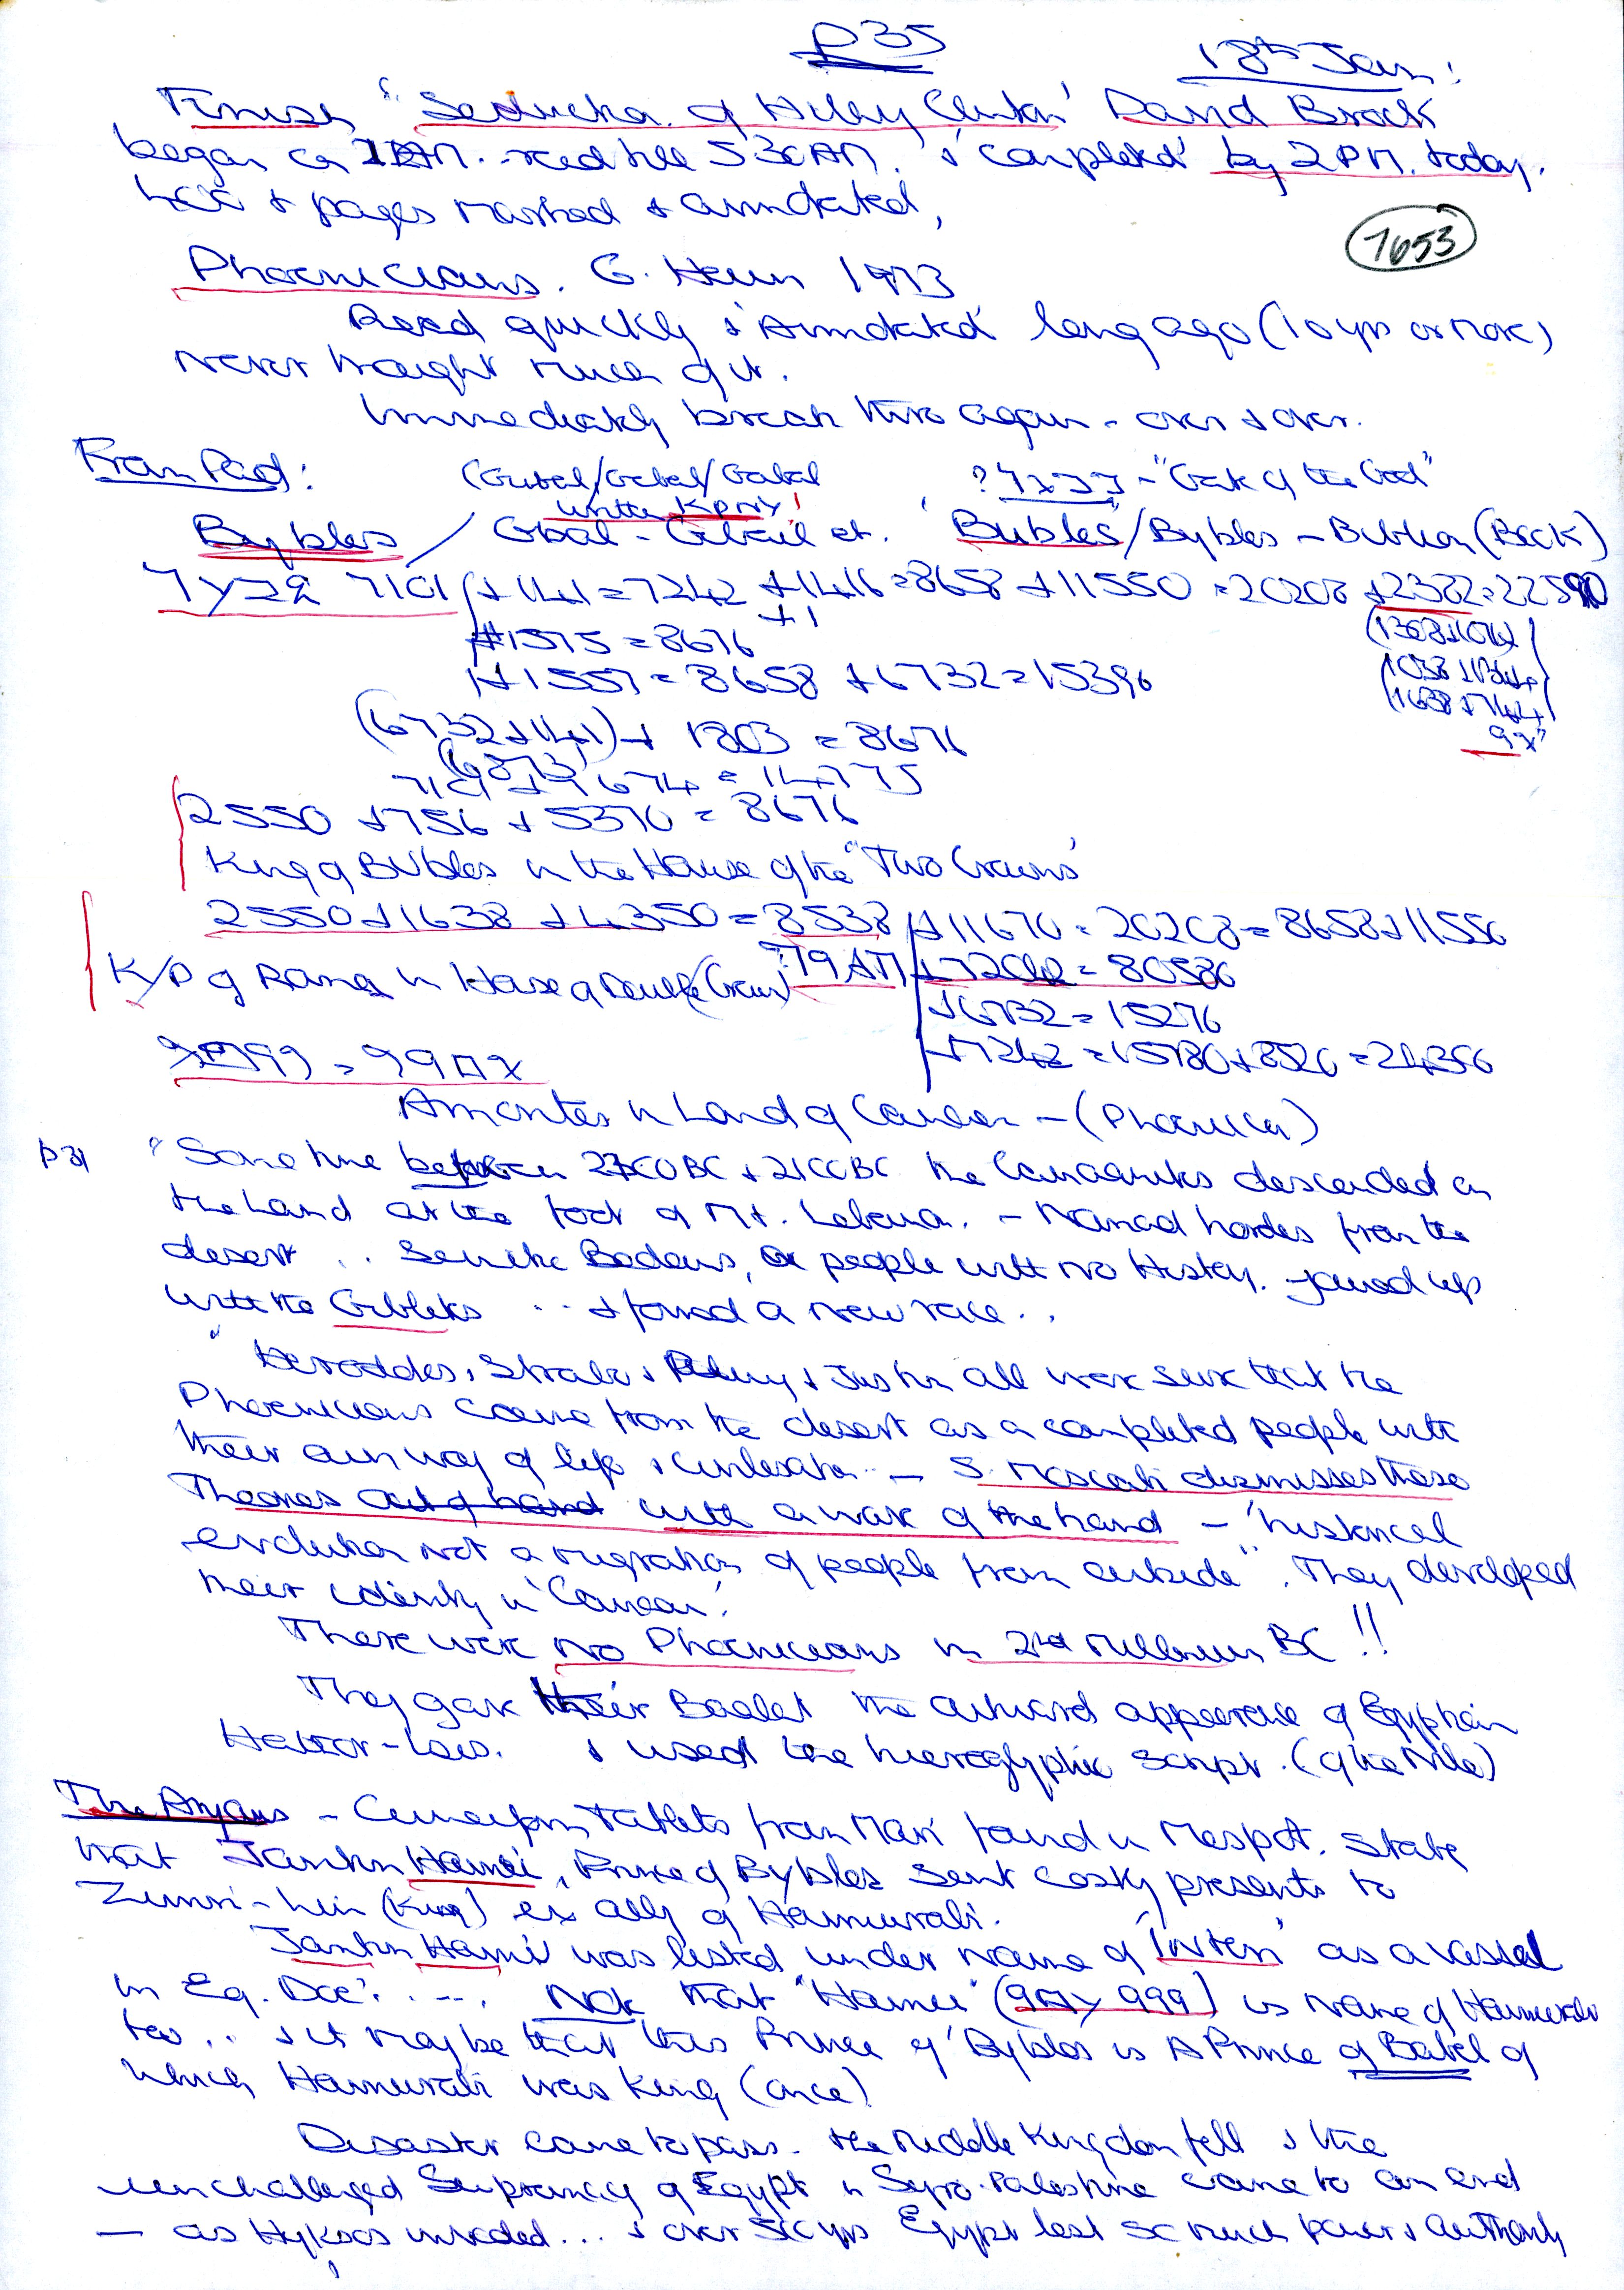 P35
18th Jan:
Finish "Seduction of Hilary Clinton' David Brock
began on 1 AM. read till 530AM. & 'completed' by 2PM. today.
& pages marked & annotated,
7653
Phoenicians. G. Herm 1973
Read quickly & 'Annotated' long ago (10 yrs or more)
never thought much of it.
Immediately break thro again - over & over.
From Pad: (Gubel/Gebel/Gabal ? - "Gate of the God"
written KPNY!
Byblos / Gbal - Gbail et. 'Bublos'/Byblos - Biblion (Book)
7101 +141 = 7242 +1416 = 8658 +11550 = 20208 +2382 = 22590
+1
+1575 = 8676
+1557 = 8658 +6732 = 15390
(6732+141)+ 1803 = 8676
(6873)
7101 + 7674 = 14775
9x"
2550 +756 +5370 = 8676
King of BUblos in the House of the "Two Crowns'
2550+1638 +4350 = 8538 +11670 = 20208 = 8658+11550
K/P of in House of Double (Crown) +72042 = 80586
+6732 = 15276
+7242 = 15780+8526 = 24306
Amorites in Land of Canaan - (Phoenicia)
P31 "Some time between 2300BC & 2100BC the Canaanites descended on
the land at the foot of Mt. Lebanon. - Nomad hordes from the
desert .. Semitic Bedouins, or people with no History. joined up
with the Giblites ... & formed a new race..
" Herodotus, Strabo & Pliny & Justin all were sure that the
Phoenicians came from the desert as a completed people with
their own way of life & civilisation - S. Moscati dismisses these
Theories out of hand with a wave of the hand - 'historical
evolution not a migration of people from outside". They developed
their identity in 'Canaan'.
There were No Phoenicians in 2nd Millenium BC!!
They gave their Baalat the outward appearance of Egyptian
Hathor-Isis. & used the hieroglyphic script. (of the Nile)
The Aryans - Cuneiform Tablets from Mari found in Mespot. State
that Jantin Hamu, Prince of Byblos sent costly presents to
Zimri-Lin (King) ex ally of Hamurabi.
Jantin Hamu was listed under name of 'Inten' as a vassal
in Eg. Doc'. .... Note that "Hamu" ( 999) is name of Hamurabi
too .. & it may be that this Prince of 'Byblos is A Prince of Babel of
which Hamurabi was King (once)
Disaster came to pass. the Middle Kingdom fell & the
unchallenged Supremacy of Egypt in Syro-Palestine came to an end
— as Hyksos invaded... & over yrs Egypt lost so much power & authority